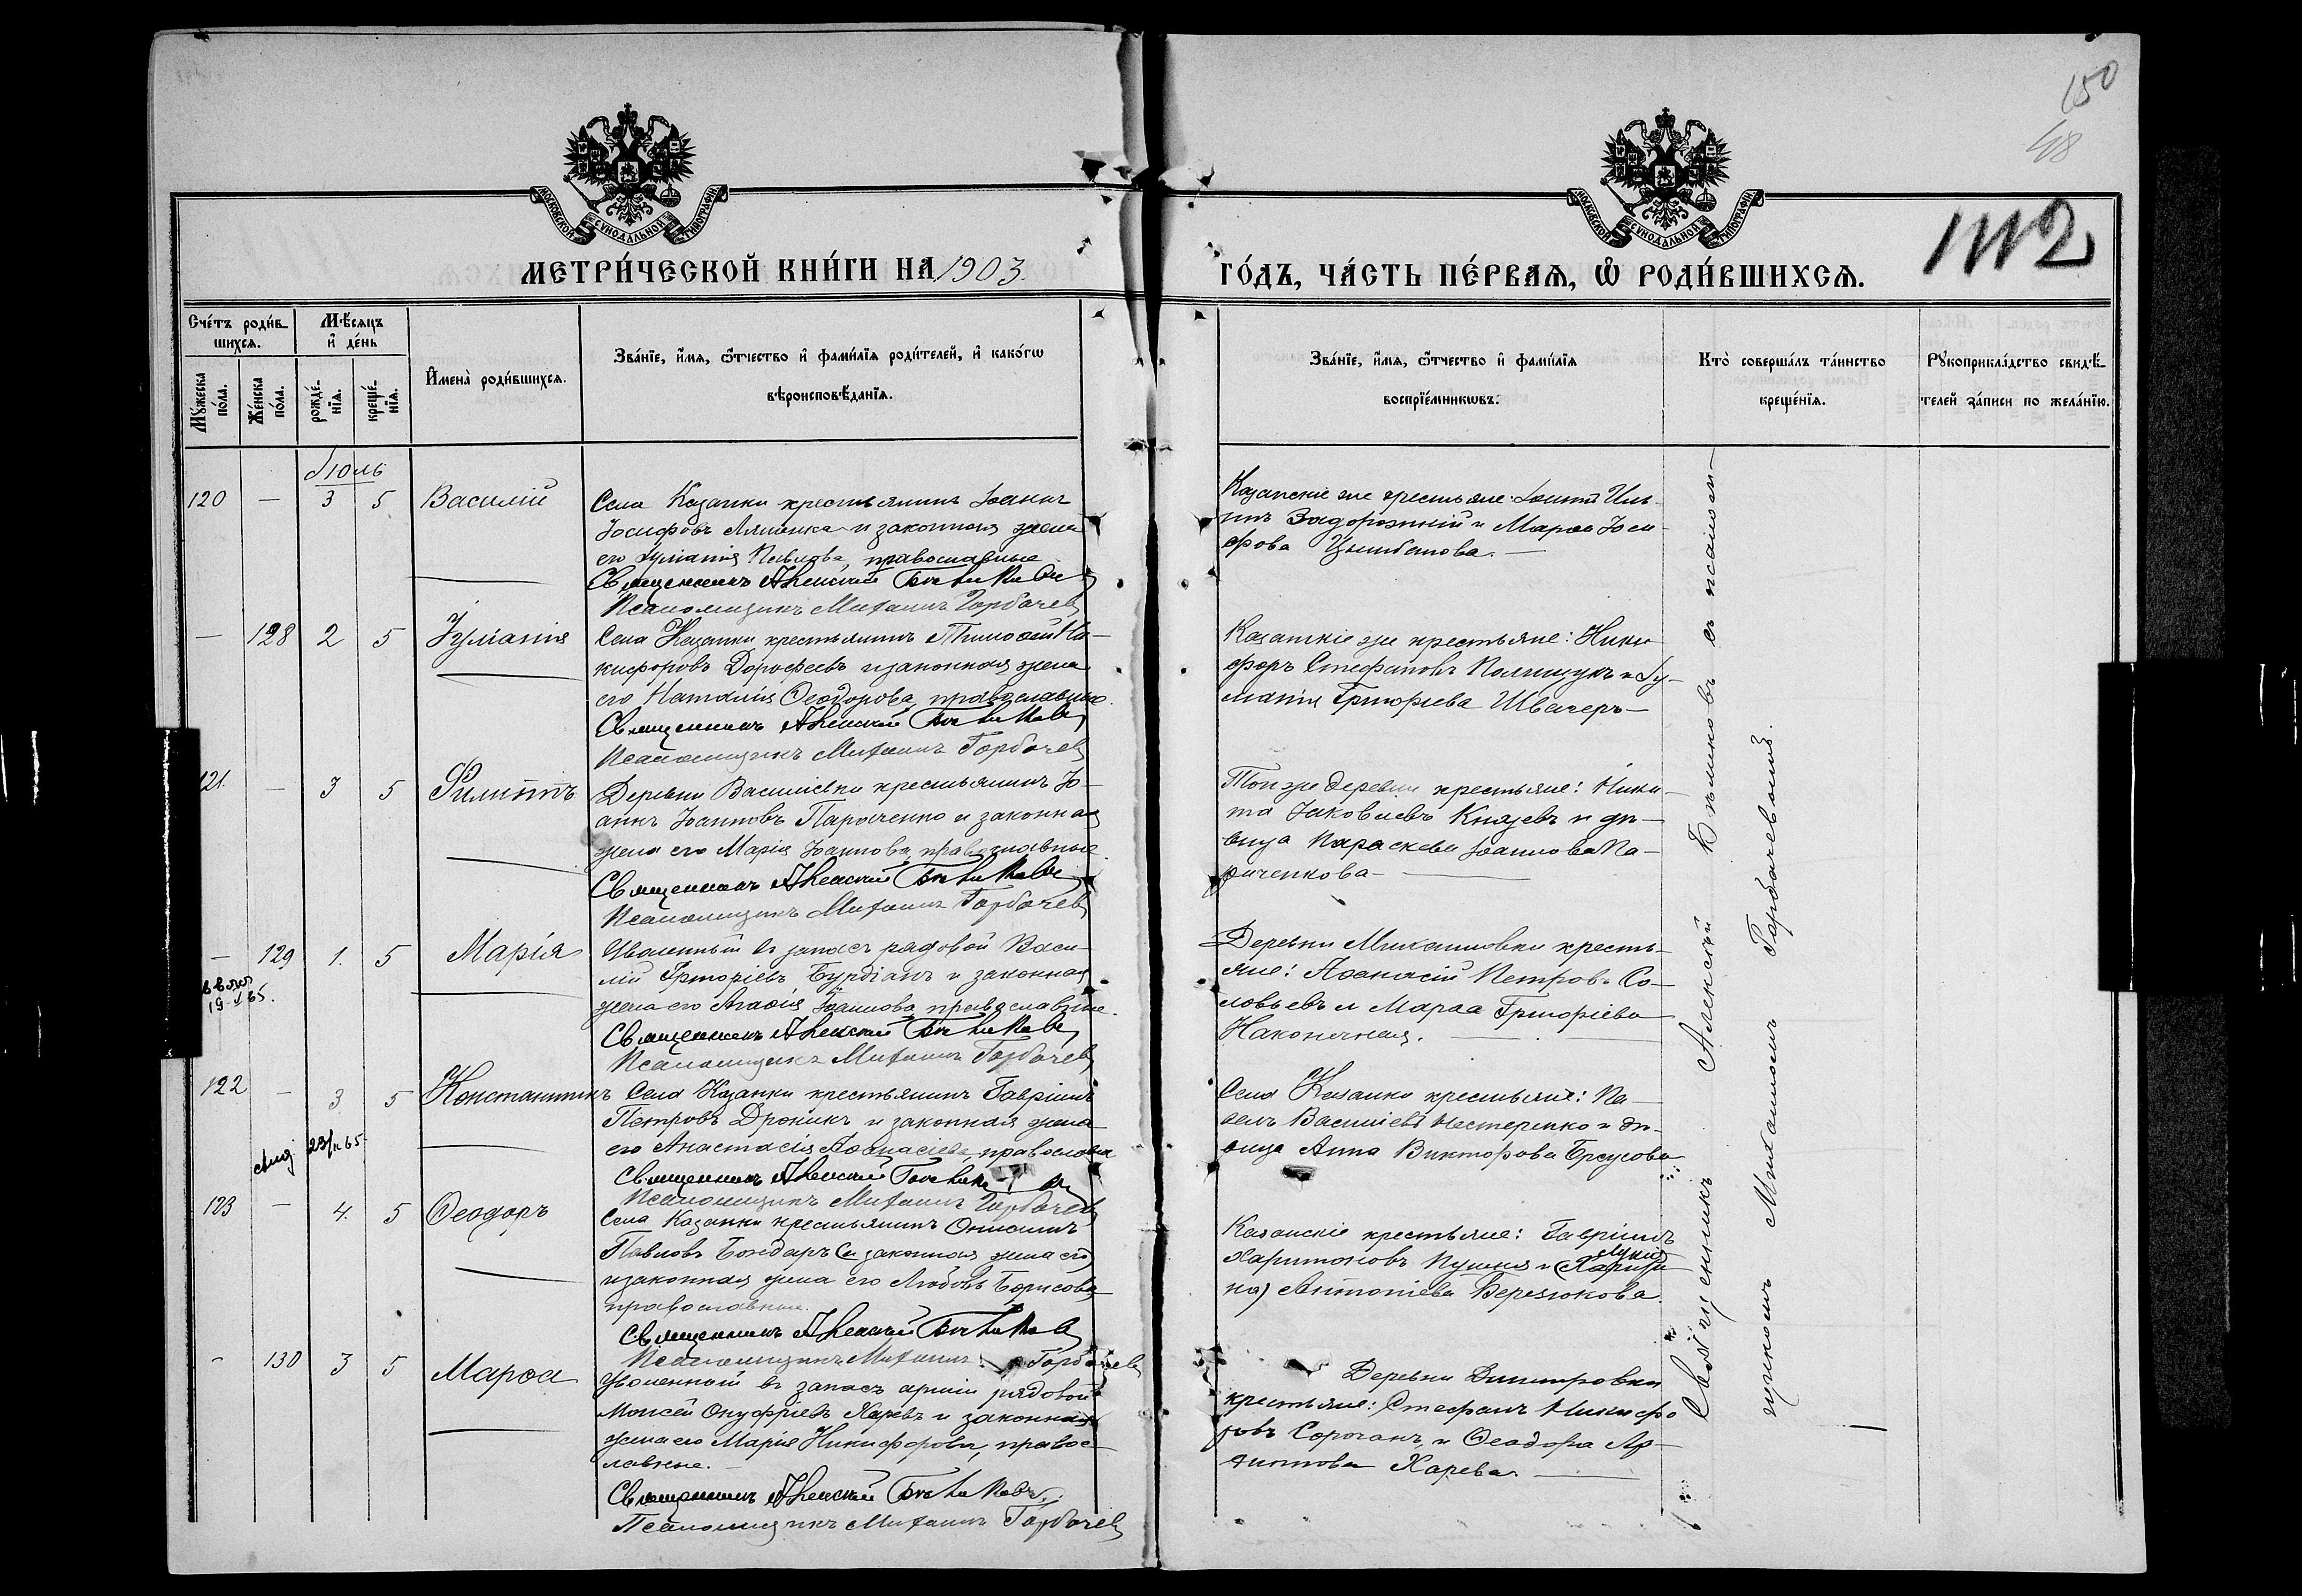 150
48
1112
МОСКОВСКОЙ СѴНОДАЛЬНОЙ ТИПОГРАФІИ
МОСКОВСКОЙ СѴНОДАЛЬНОЙ ТИПОГРАФІИ
МЕТРИ́ЧЕСКОЙ КНИ́ГИ НА 1903.
ГО́ДЪ, ЧА́СТЬ ПЕ́РВАѦ, Ѡ҆ РОДИ́ВШИХСѦ.
Сче́тъ роди́в-
шихсѧ.
Мѣ́сѧцъ
и҆ де́нь
Мꙋ́жеска
по́ла.
Же́нска
по́ла.
рожде́-
нїѧ.
креще́-
нїѧ.
И҆мена̀ роди́вшихсѧ.
Зва́нїе, и҆́мѧ, ѻ҆́тчество и҆ фами́лїѧ роди́телей, и҆ како́гѡ
вѣроисповѣ́данїѧ.
Зва́нїе, и҆́мѧ, ѻ҆́тчество и҆ фами́лїѧ
воспрїе́мникѡвъ.
Кто̀ соверша́лъ та́инство
креще́нїѧ.
Рꙋкоприкла́дство свидѣ́-
телей за́писи по жела́нїю.
Іюль
120 — 3 5 Василій
Села Казанки крестьянинъ Іоаннъ
Іосифовъ и законная жена
его Іуліанія Павлова, православные
Священникъ Алексій
Псаломщикъ Михаилъ Горбачевъ
Казанскіе же крестьяне: Іоаннъ Иль-
инъ Задорожній и Марѳа Іоси-
фова Цымбалова. —
— 128 2 5 Іуліанія
Села Казанки крестьянинъ Тимоѳей Ни-
кифоровъ Дорофеевъ и законная жена
его Наталія Ѳеодорова, православные.
Священникъ Алексій
Псаломщикъ Михаилъ Горбачевъ
Казанскіе же крестьяне: Ники-
форъ Стефановъ Полищукъ и Іу-
ліанія Григорьева Швачеръ —
121. — 3 5 Филиппъ
Деревни Василіевки крестьянинъ Іо-
аннъ Іоанновъ Париченко и законная
жена его Марія Іоаннова, православные.
Священникъ Алексій
Псаломщикъ Михаилъ Горбачевъ
Той же деревни крестьяне: Ники-
та Іаковлевъ Князевъ и дѣ-
вица Параскева Іоаннова Па-
риченкова —
— 129 1. 5 Марія
19 65.
Уволенный въ запасъ рядовой Васи-
лій Григоріевъ Бурдіанъ и законная
жена его Агаѳія Іоаннова, православные.
Священникъ Алексій
Псаломщикъ Михаилъ Горбачевъ
Деревни Михайловки кресть-
яне: Аѳанасій Петровъ Со-
ловьевъ и Марѳа Григоріева
Наконечная. —
122 — 3 5 Константинъ
65
Села Казанки крестьянинъ Гавріилъ
Петровъ Дроникъ и законная жена
его Анастасія Аѳанасіева, православные
Священникъ Алексій
Псаломщикъ Михаилъ Горбачевъ
Села Казанки крестьяне: Па-
велъ Василіевъ Нестеренко и дѣ-
вица Анна Викторова Брусова
123 — 4. 5 Ѳеодоръ
Села Казанки крестьянинъ Онисимъ
Павловъ Бондарь (и законная жена его)
и законная жена его Любовь Борисова,
православные.
Священникъ Алексій
Псаломщикъ Михаилъ Горбачевъ
Казанскіе крестьяне: Гавріилъ
Харитоновъ Пушка и
на) Антоніева Березюкова.
— 130 3 5 Марѳа
Уволенный въ запасъ арміи рядовой
Моисей Онуфріевъ Харевъ и законная
жена его Марія Никифорова, правос-
лавные.
Священникъ Алексій
Псаломщикъ Михаилъ Горбачевъ
Деревни Димитровки
крестьяне: Стефанъ Никифо-
ровъ Сорочанъ, и Ѳеодора
Харева. —
Священникъ Алексій съ псалом-
щикомъ Михаиломъ Горбачевымъ.